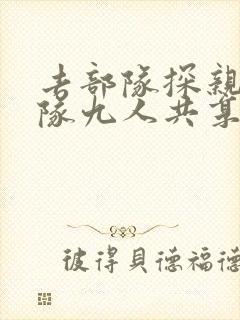 去部隊探親
隊九人共
彼得貝德福德